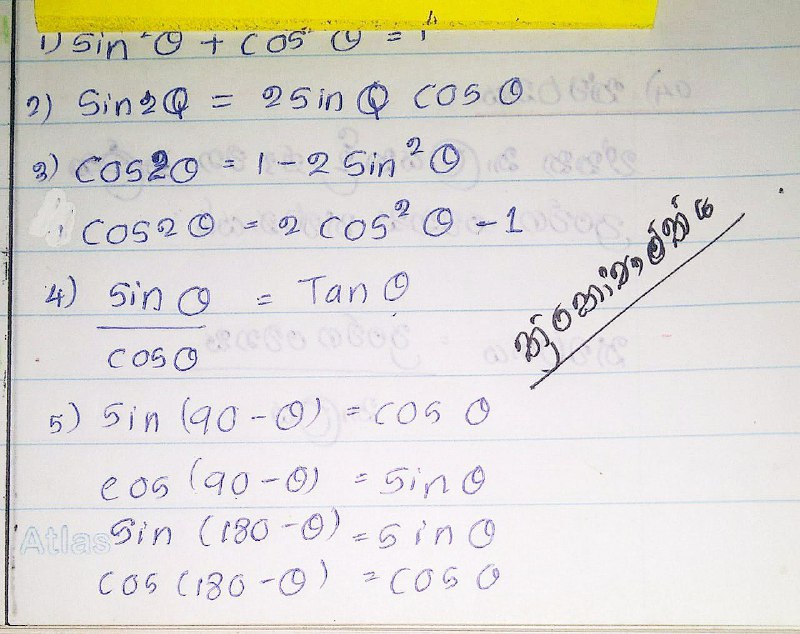 1) Sin²θ + cos²θ = 1
2) Sin2θ = 2Sinθ cosθ
3) cos2θ = 1 - 2Sin²θ
cos2θ = 2cos²θ - 1
4) Sinθ = Tanθ
cosθ
5) Sin (90 - θ) = cosθ
cos (90 - θ) = Sinθ
Atlas Sin (180 - θ) = Sinθ
cos (180 - θ) = cosθ